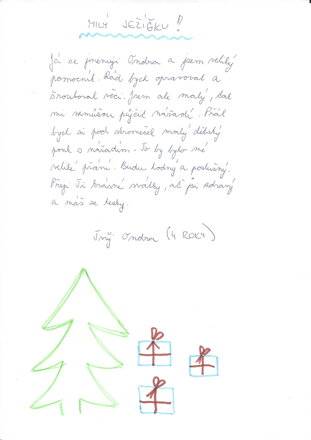 MILÝ JEŽÍŠKU!
Já se jmenuji Ondra a jsem veliký
pomocník. Rád bych opravoval a
šrouboval věci. Jsem ale malý, tak
mi nemůžou půjčit nářadí. Přál
bych si pod stromeček malý dětský
ponk s nářadím. To by bylo mé
veliké přání. Budu hodný a poslušný.
Přeji Ti krásné svátky, ať jsi zdravý
a máš se hezky.
Tvůj Ondra (4 ROKY)